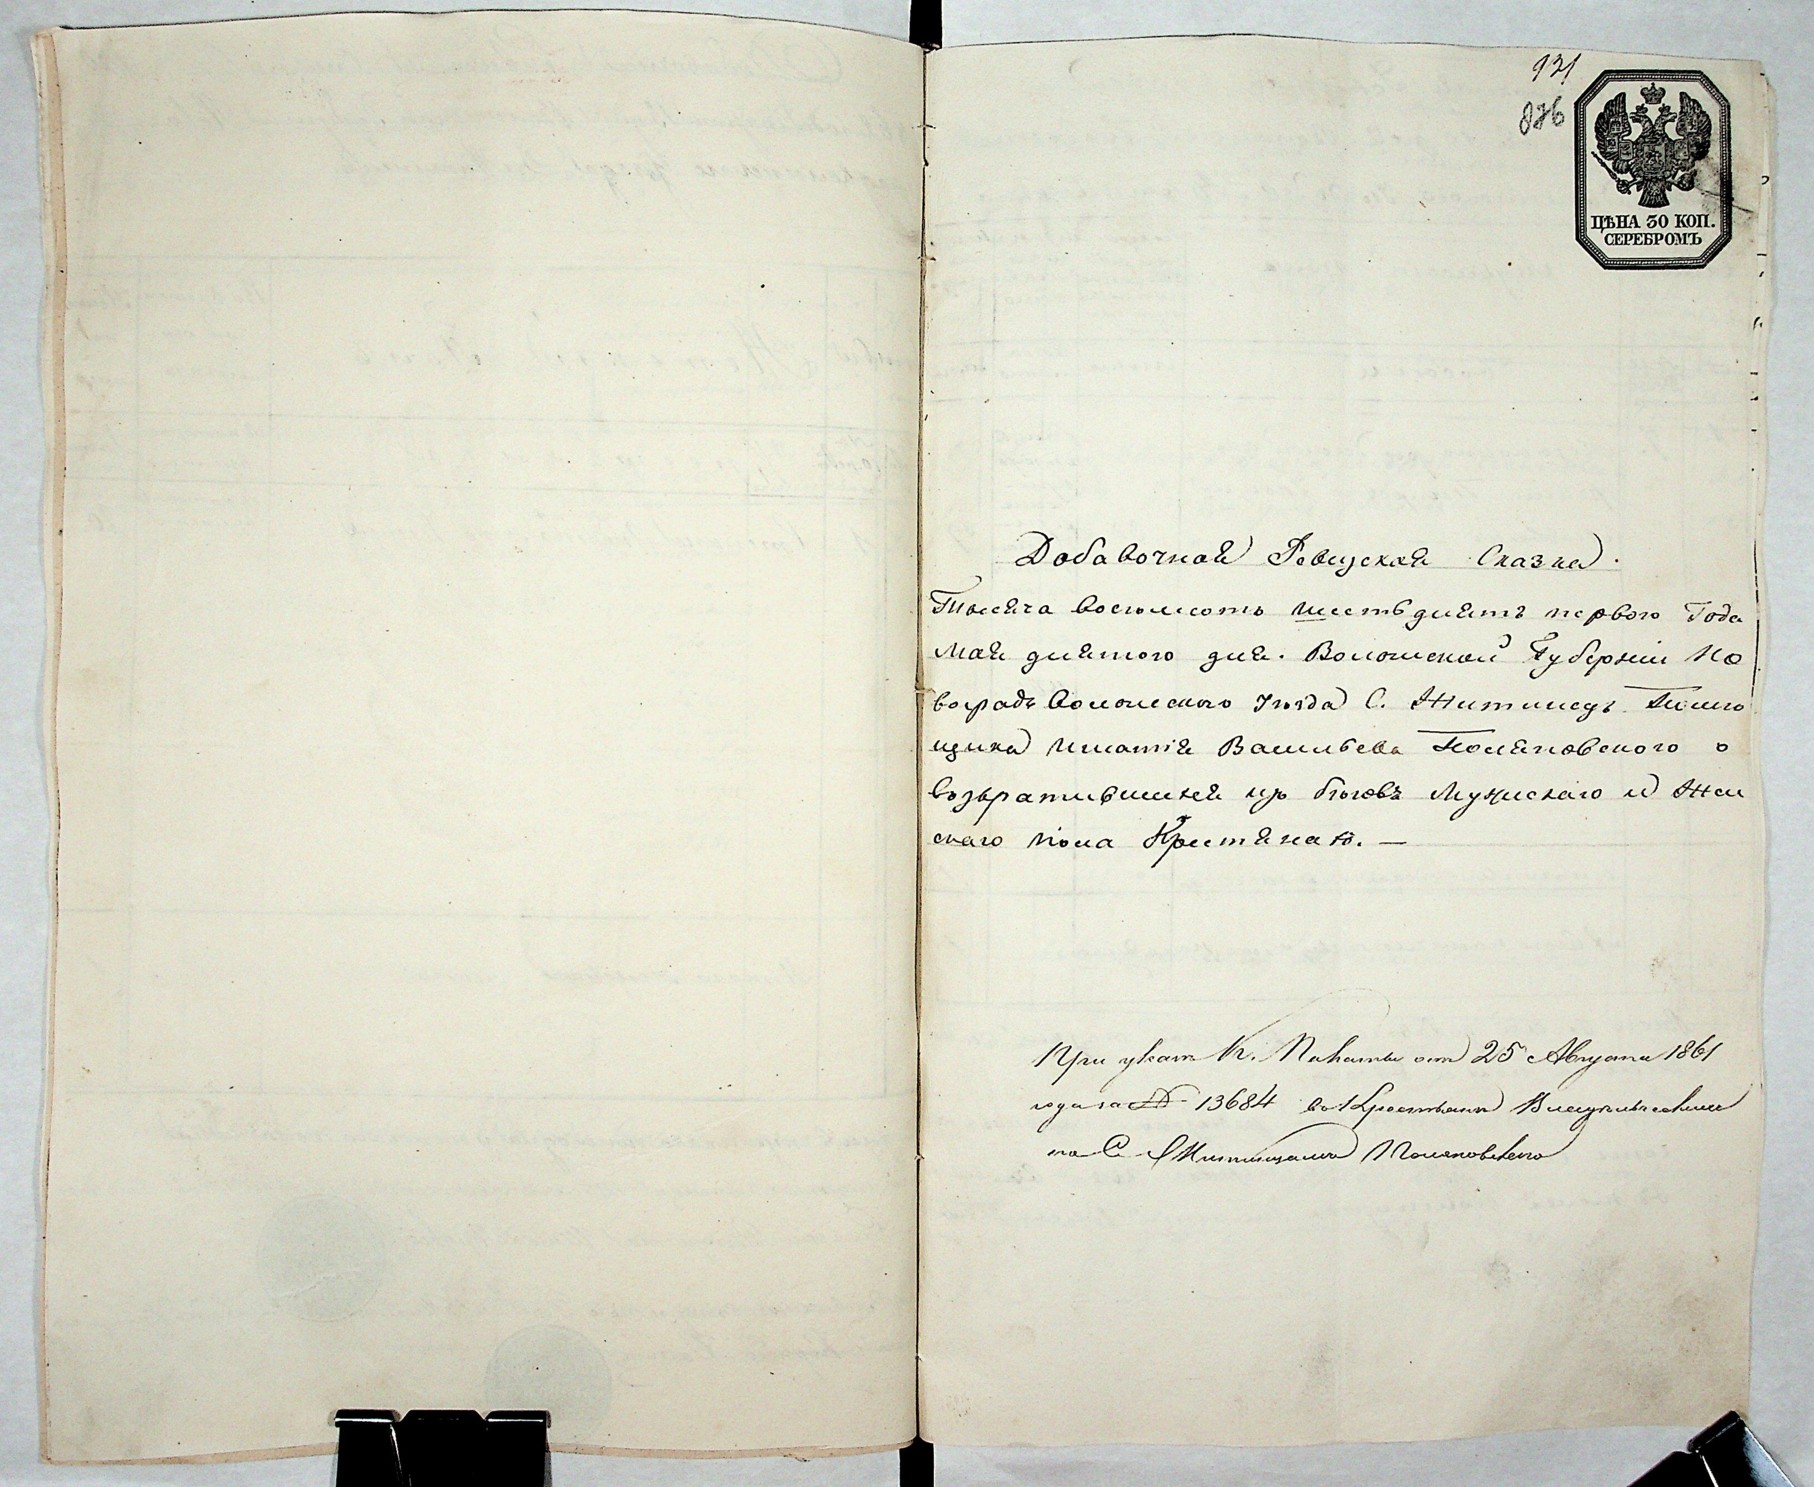 921
876
ЦѢНА 30 КОП.
СЕРЕБРОМЪ
Добавочная Ревизская Сказка.
Тысяча восемьсотъ шестьдиятъ первого Года
Мая диятого дня. Волынской Губерніи Но
воградъ Волынского Уѣзда С. Житинецъ Помѣ
щика Игнатія Васильева Поляновского о
возвратившихся изъ бѣговъ Мужискаго и Жен
скаго пола Крестянахъ. —
При указѣ К. Палаты от 25 Августа 1861
года за № 13684 о Крестьянѣ
по С. Житинцамъ Поляновского